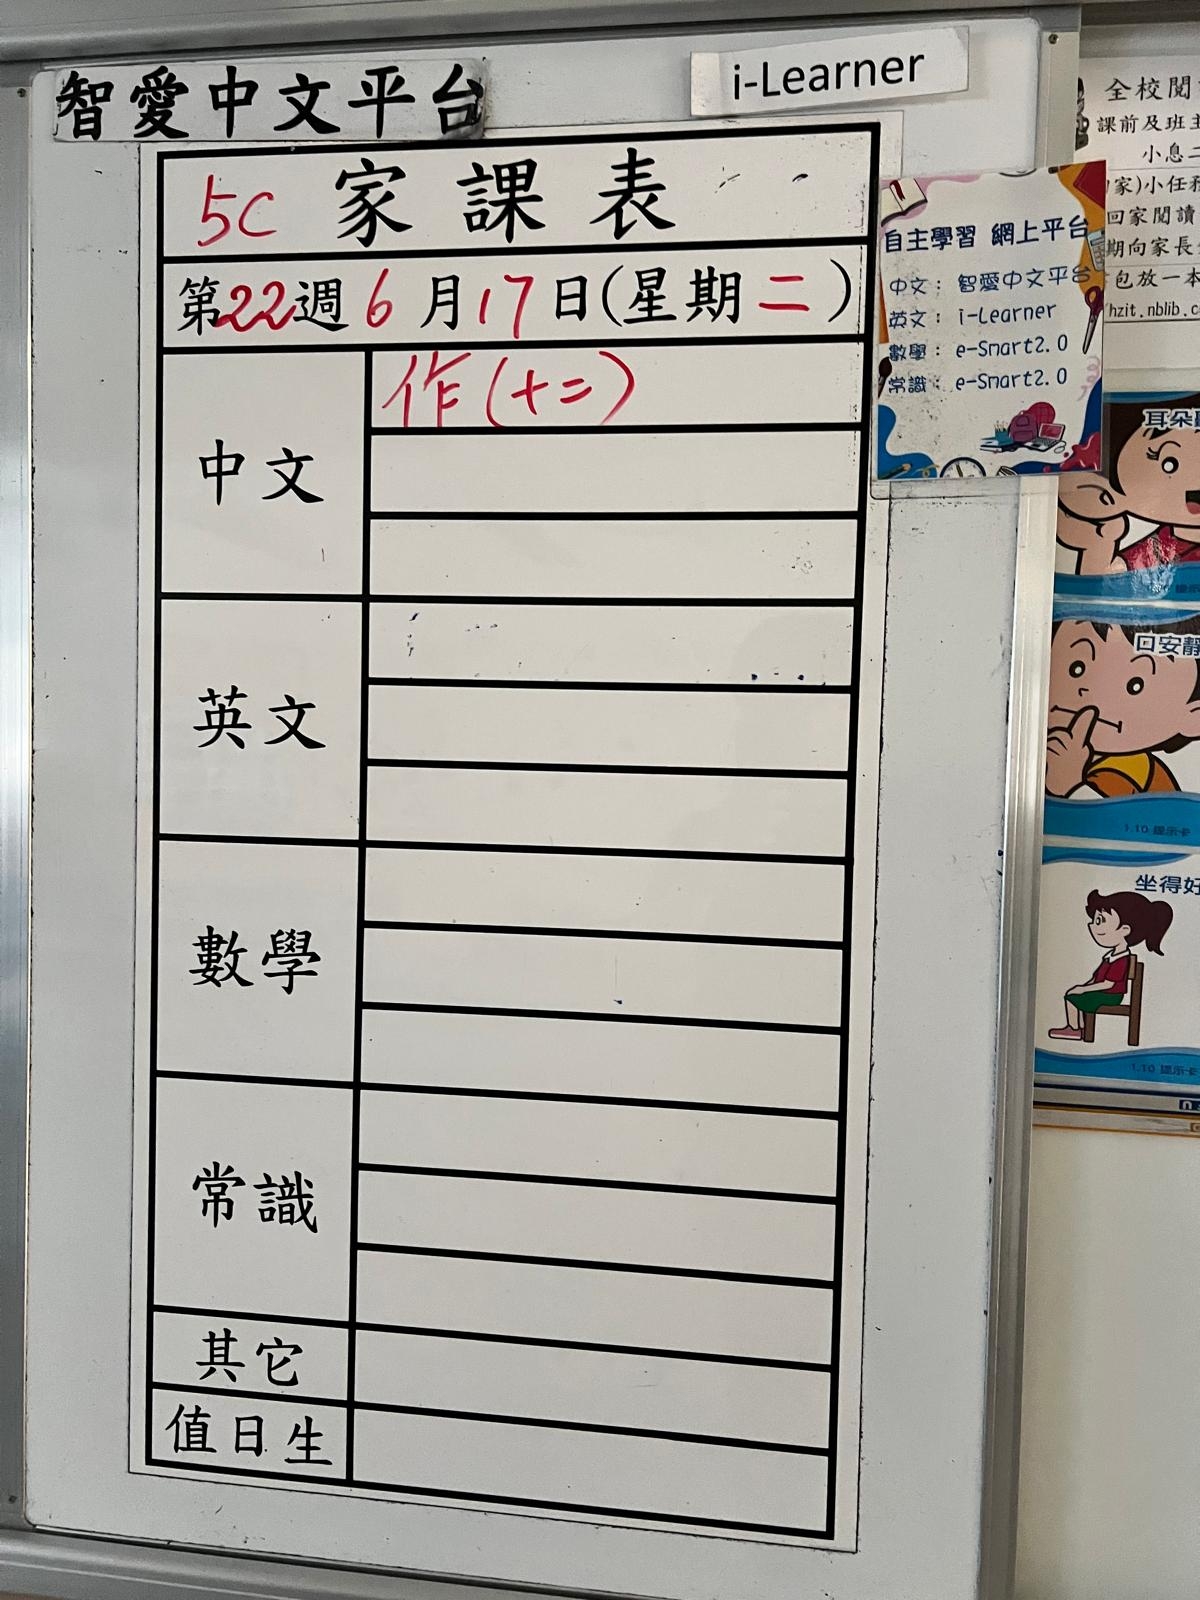 智愛中文平台
i-Learner
5C 家課表
第22週6月17日(星期二)
中文
作(十二)
英文
數學
常識
其它
值日生
自主學習 網上平台
中文: 智愛中文平台
英文: i-Learner
數學: e-Smart2.0
常識: e-Smart2.0
全校閱
課前及班主
小息二
家)小任務
回家閱讀
期向家長
包放一本
hzit.nblib.c
耳朵
口安靜
1.10 提示卡
坐得好
1.10 提示卡